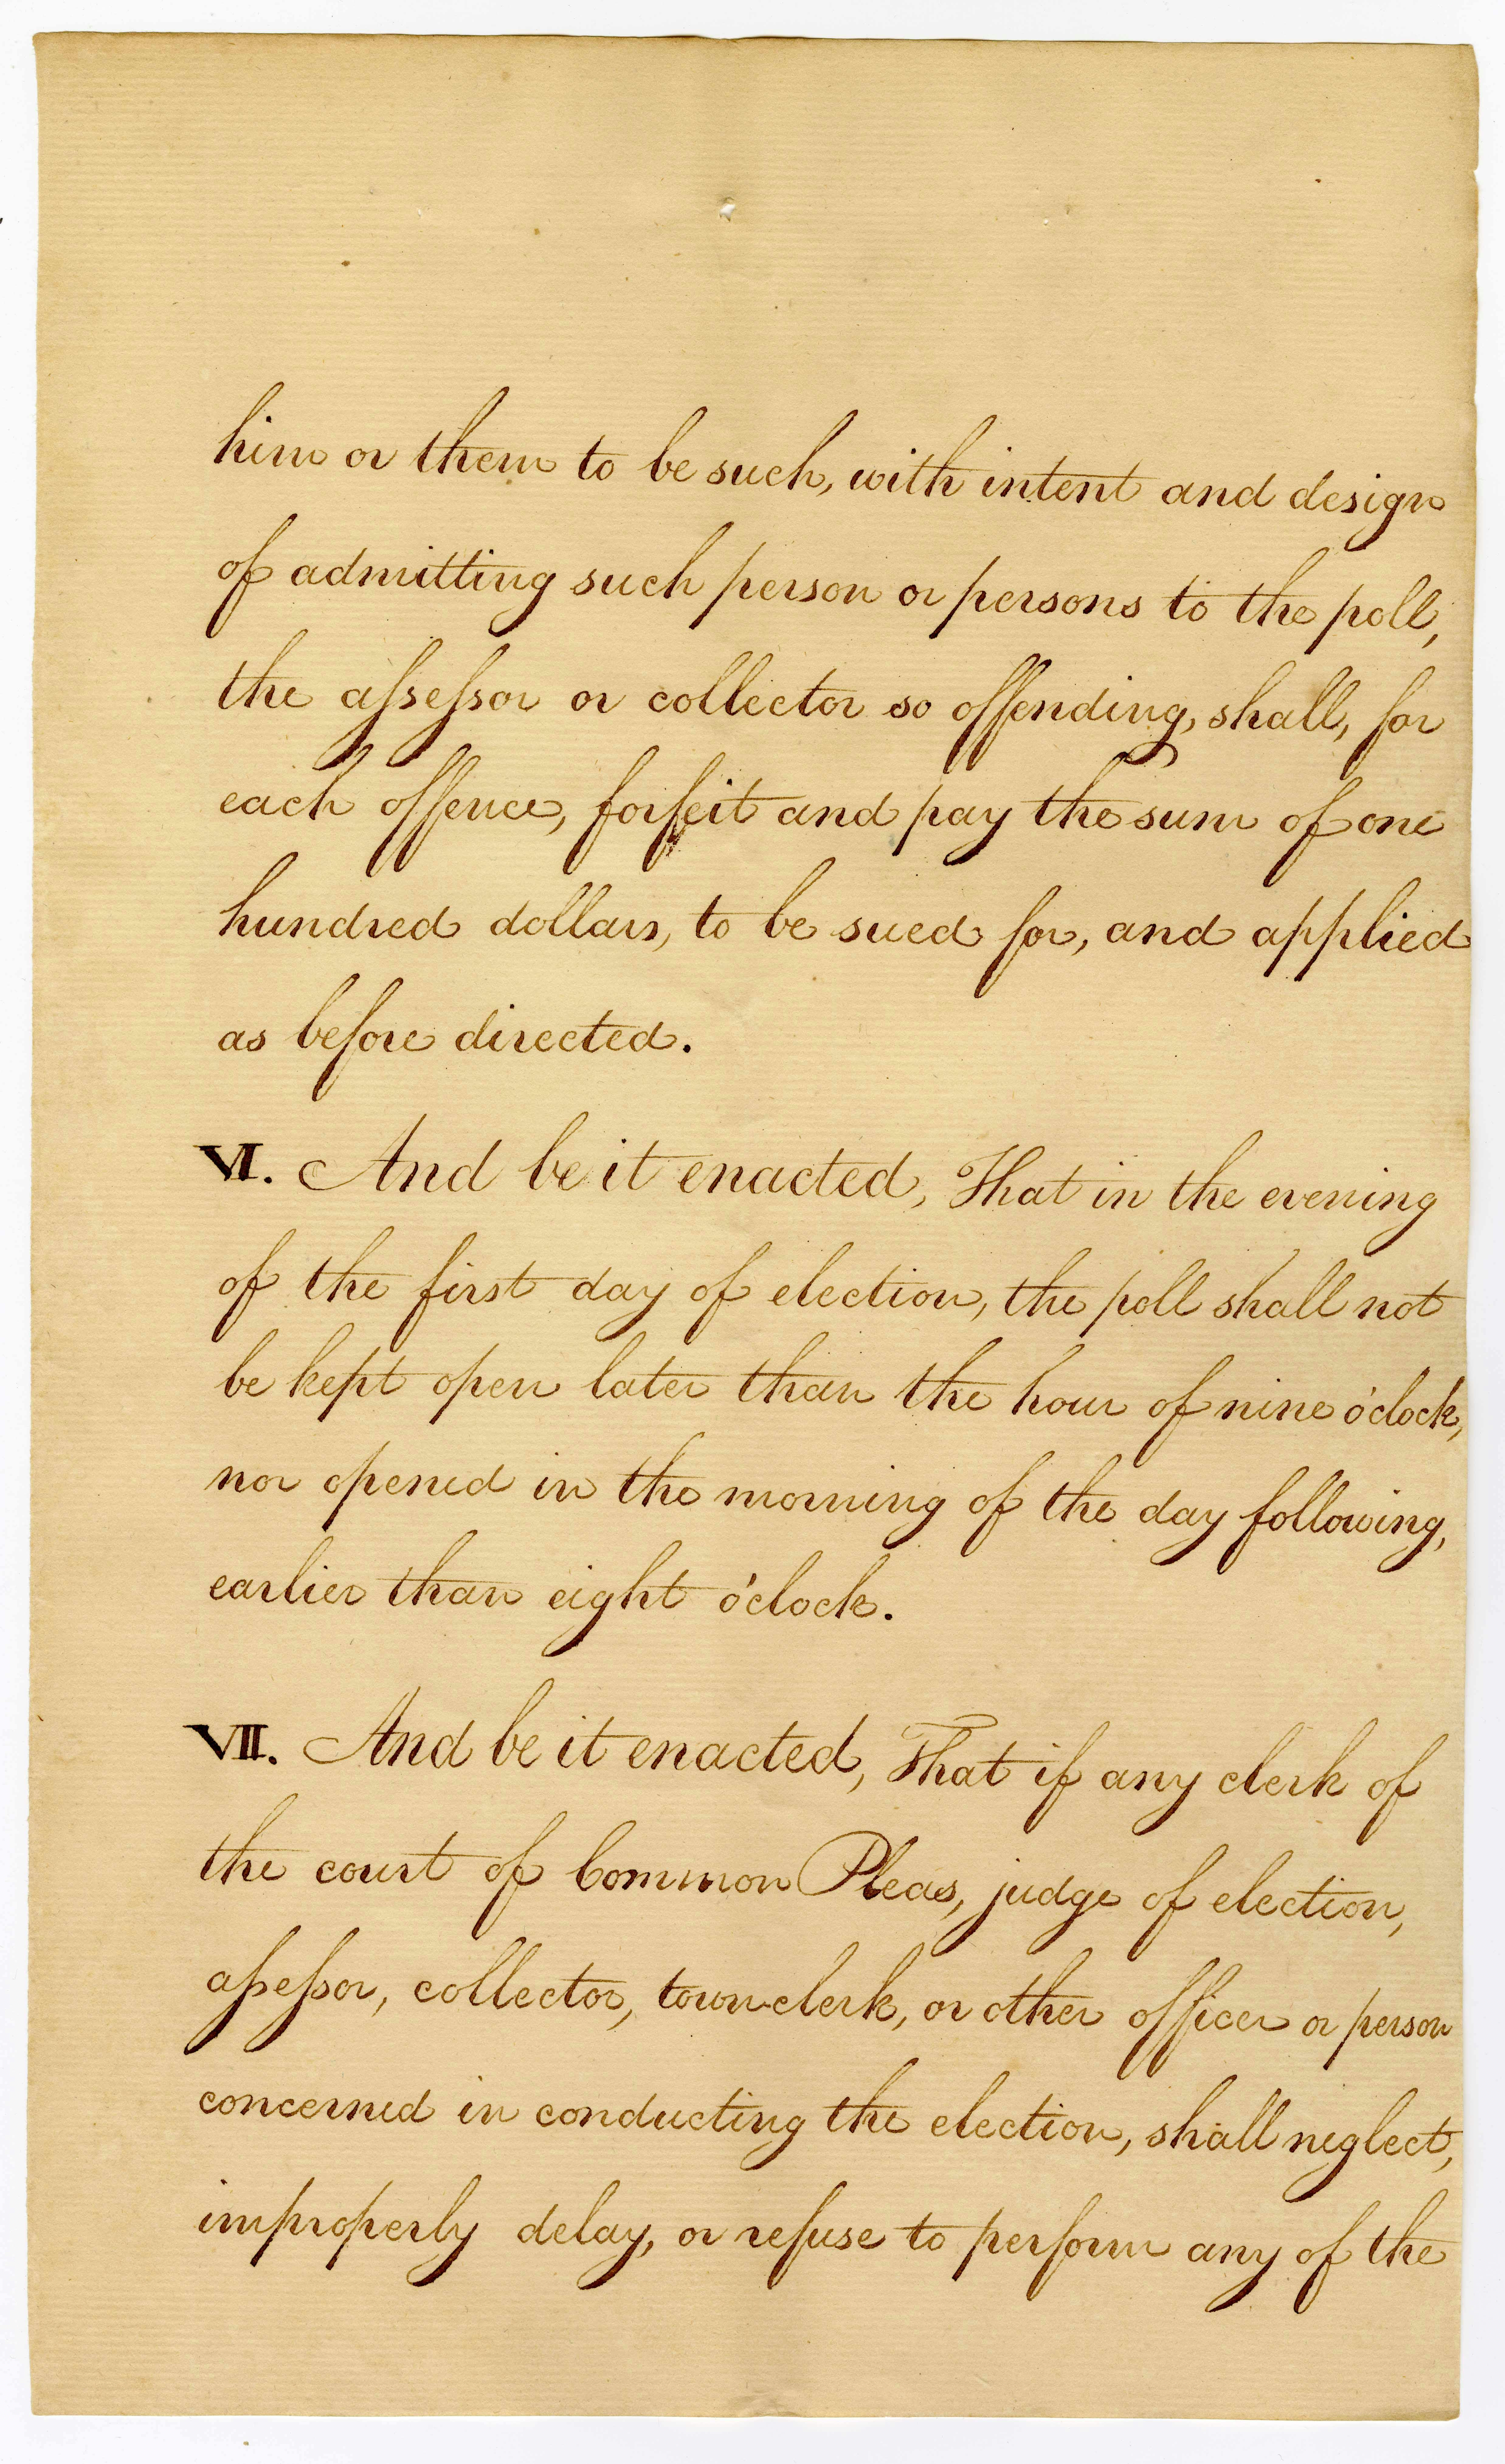 him or them to be such, with intent and design
of admitting such person or persons to the poll,
the assessor or collector so offending, shall, for
each offence, forfeit and pay the sum of one
hundred dollars, to be sued for, and applied
as before directed.
VI. And be it enacted, That in the evening
of the first day of election, the poll shall not
be kept open later than the hour of nine o'clock,
nor opened in the morning of the day following,
earlier than eight o'clock.
VII. And be it enacted, That if any clerk of
the court of Common Pleas, judge of election,
assessor, collector, town-clerk, or other officer or person
concerned in conducting the election, shall neglect,
improperly delay, or refuse to perform any of the